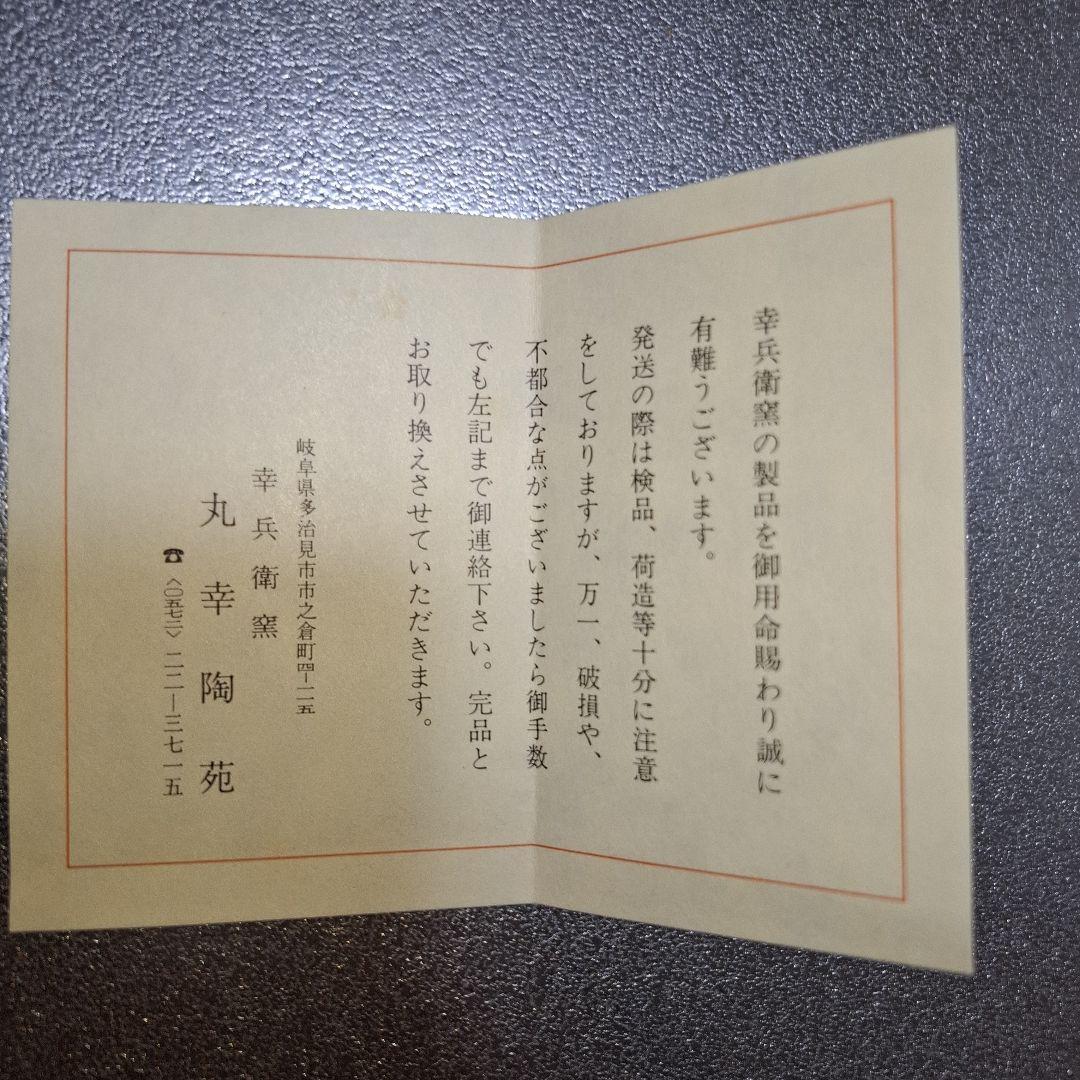 幸兵衛窯の製品を御用命賜わり誠に
有難うございます。
発送の際は検品、荷造等十分に注意
をしておりますが、万一、破損や、
不都合な点がございましたら御手数
でも左記まで御連絡下さい。完品と
お取り換えさせていただきます。
岐阜県多治見市市之倉町四−二五
幸兵衛窯
丸幸陶苑
☎〈〇五七二〉二二―三七一五